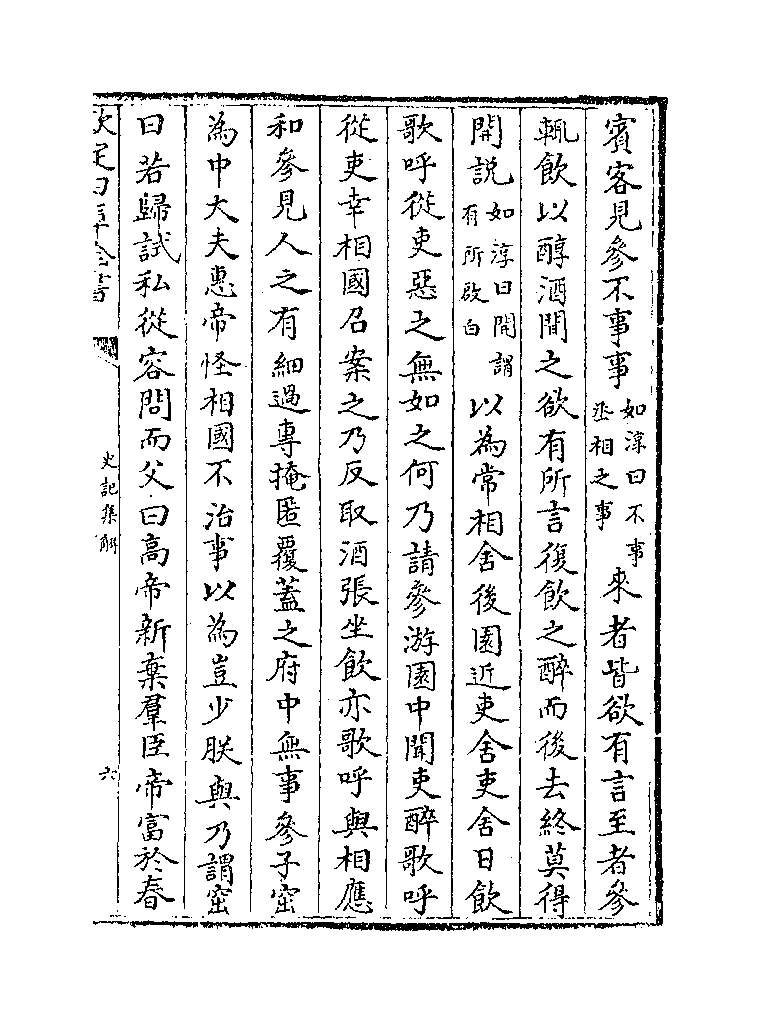 賓客見參不事事如淳曰不事丞相之事來者皆欲有言至者參
輒飲以醇酒間之欲有所言復飲之醉而後去終莫得
開説如淳曰開謂有所啟白以為常相舍後園近吏舍吏舍日飲
歌呼從吏惡之無如之何乃請參游園中聞吏醉歌呼
從吏幸相國召案之乃反取酒張坐飲亦歌呼與相應
和參見人之有細過專掩匿覆蓋之府中無事參子窋
為中大夫惠帝怪相國不治事以為豈少朕與乃謂窋
曰若歸試私從容問而父曰高帝新棄羣臣帝富於春
欽定四庫全書
史記集解
六